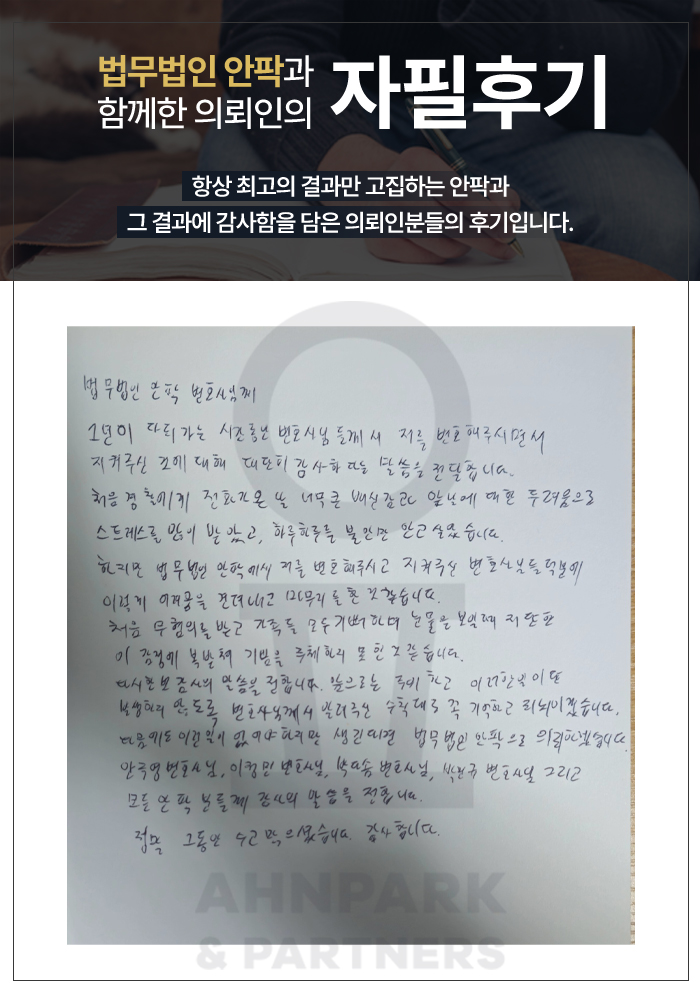 법무법인 안팍과
함께한 의뢰인의
자필후기
항상 최고의 결과만 고집하는 안팍과
그 결과에 감사함을 담은 의뢰인분들의 후기입니다.
법무법인 안팍 변호사님께
1년이 다되가는 시간동안 변호사님 들께서 저를 변호해주시면서
지켜주신 것에 대해 대단히 감사하다는 말씀을 전달합니다.
처음 경찰에게 전화가온 날 너무큰 배신감과 앞날에 대한 두려움으로
스트레스를 많이 받았고, 하루하루를 불안만 안고 살았습니다.
하지만 법무법인 안팍에서 저를 변호해주시고 지켜주신 변호사님들덕분에
이렇게 이겨움을 견뎌내고 마무리를 한 것 같습니다.
처음 무혐의를 받고 가족들 모두 기뻐하며 눈물을 보일때 저 또한
이 감정에 북받쳐 기쁨을 주체하지 못 한 것 같습니다.
다시한번 감사의 말씀을 전합니다. 앞으로는 주의 하고 이러한일이 또
발생하지 않도록 변호사님께서 알려주신 수칙대로 꼭 기억하고 되뇌이겠습니다.
다음에도 이런일이 없어야 하지만 생긴다면 법무법인 안팍으로 의뢰하겠습니다.
안주영변호사님, 변호사님, 변호사님, 변호사님 그리고
모든 안팍 분들께 감사의 말씀을 전합니다.
정말 그동안 수고 많으셨습니다. 감사합니다.
AHNPARK
& PARTNERS